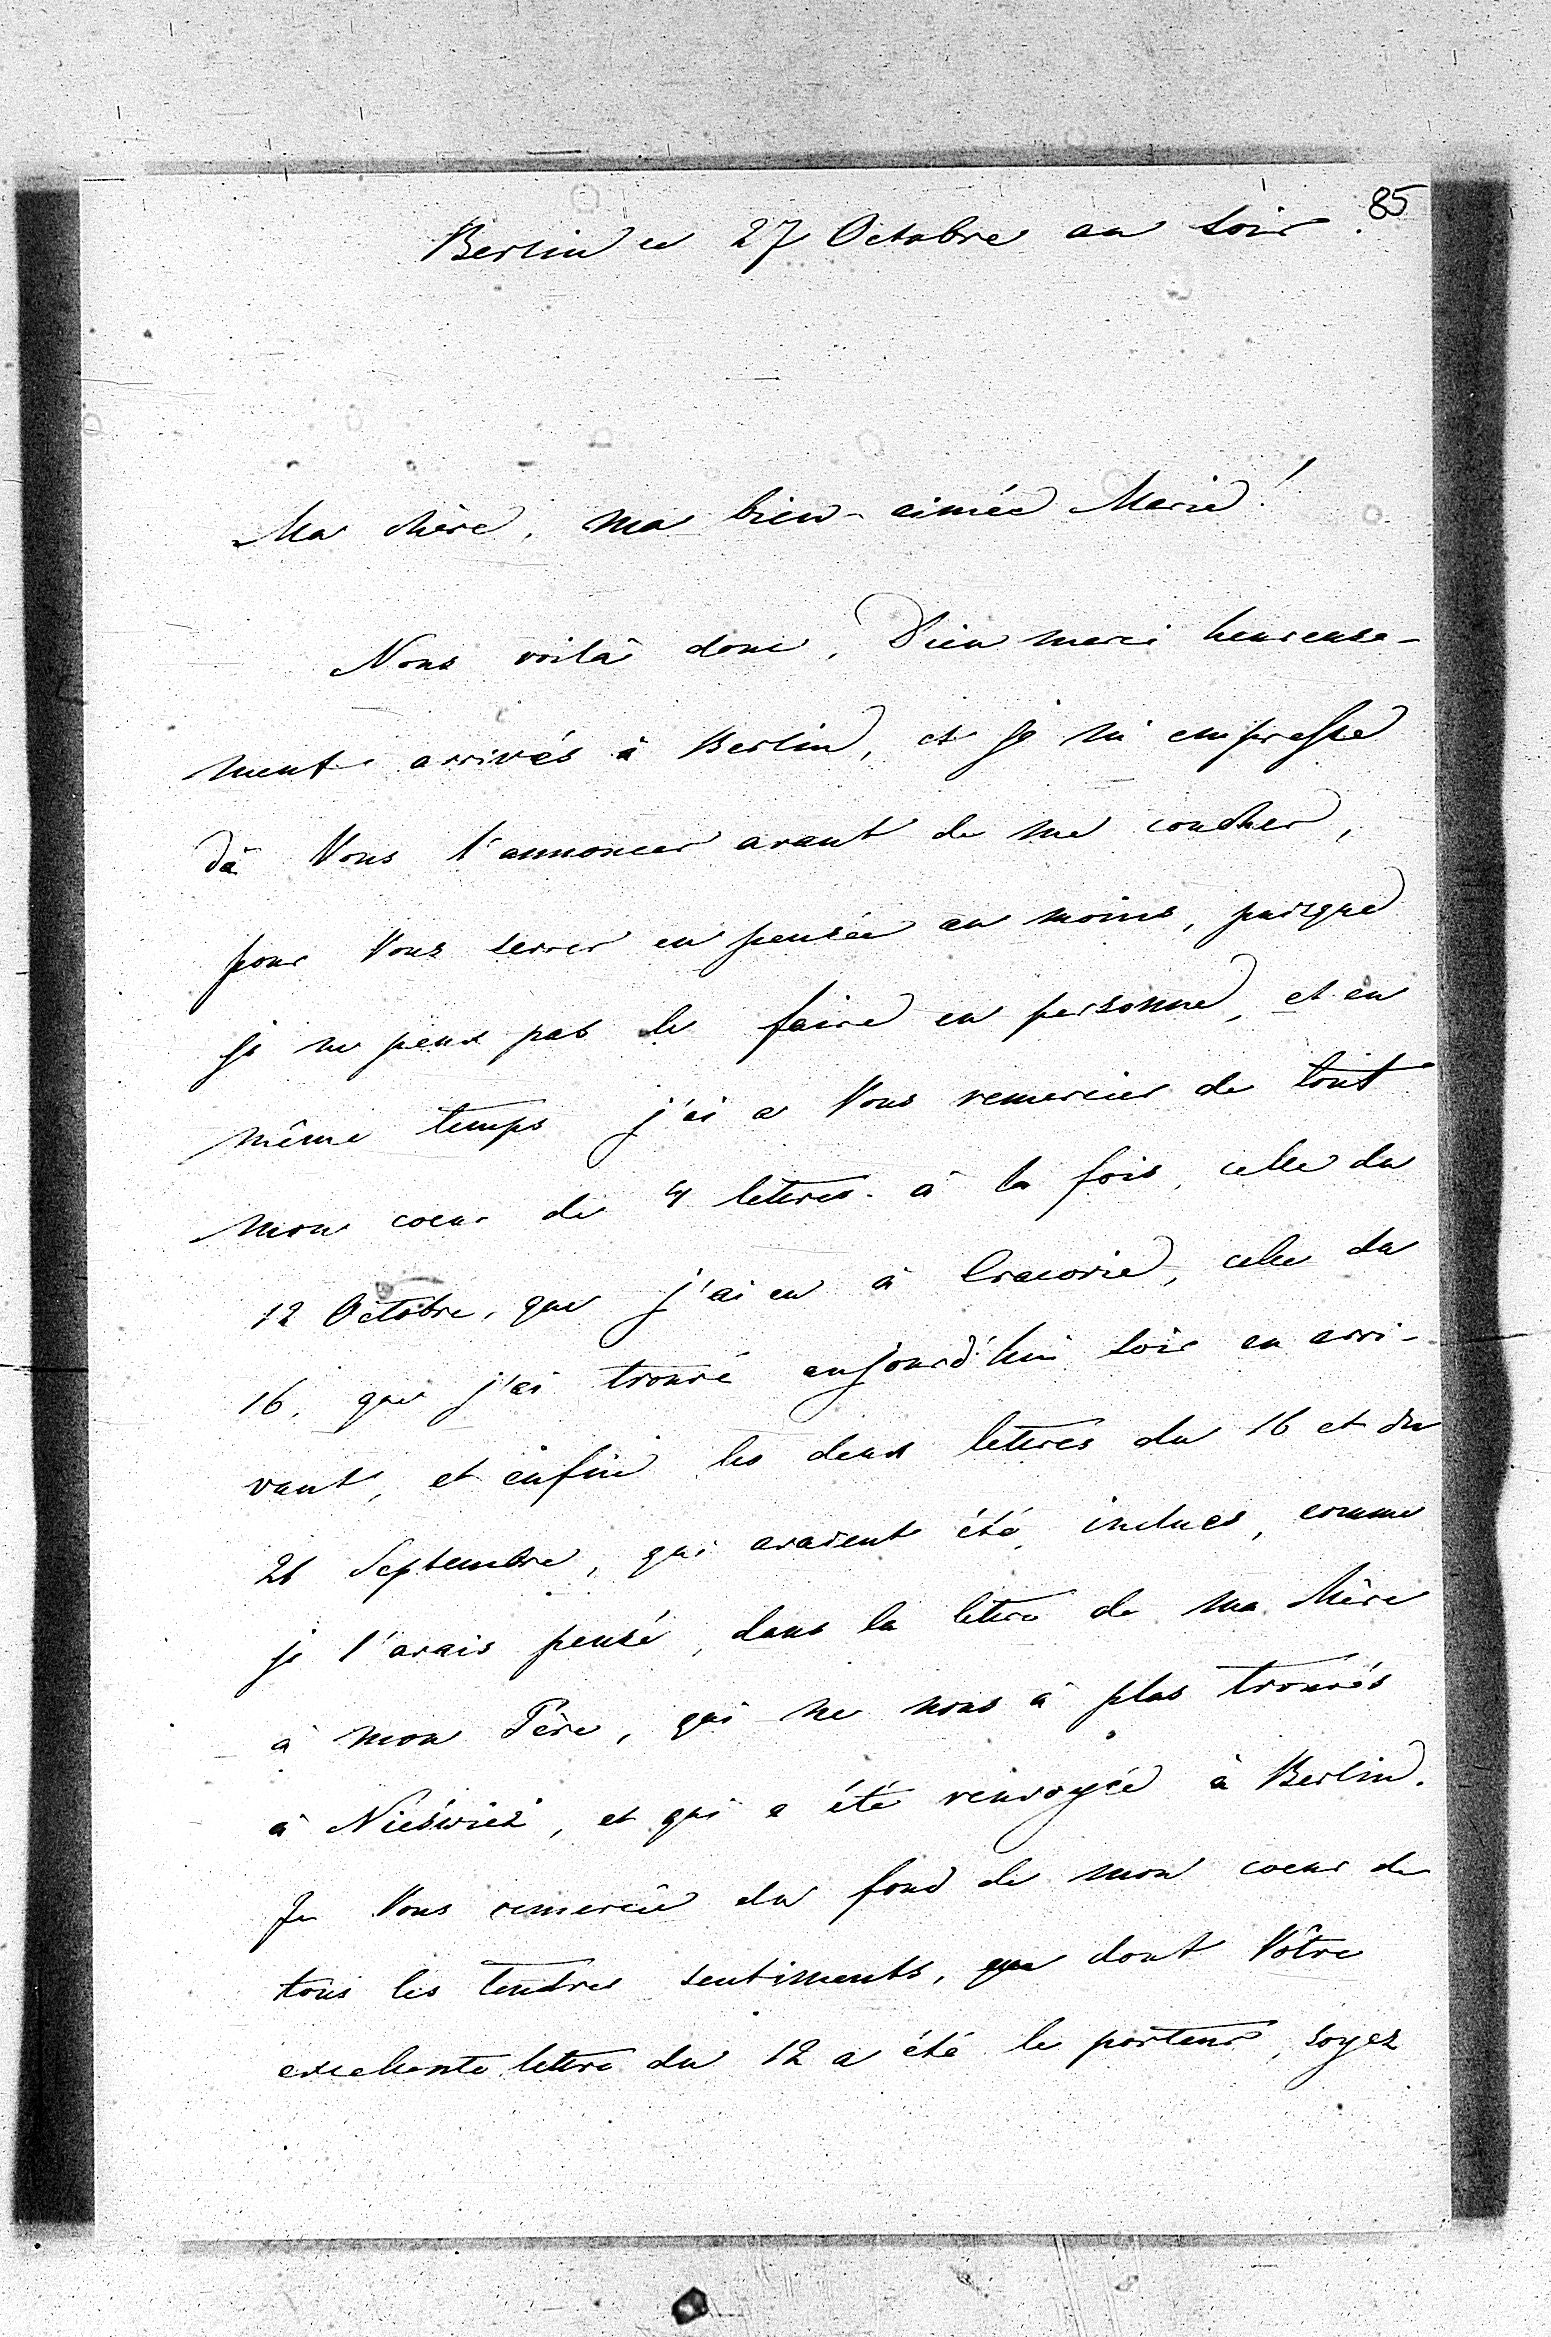 85
Berlin ce 27 Octobre au soir.
Ma chère, ma bien-aimée Marie!
Nous voilà donc, Dieu merci heureuse-
ment arrivés à Berlin, et je m'empresse
dà Vous l'annoncer avant de me coucher,
pour Vous serrer en pensée au moins, puisque
je ne peux pas le faire en personne, et en
même temps j'ai a Vous remercier de tout
mon coeur de 4 lettres à la fois, celle du
12 Octobre, que j'ai eu à Cracovie, celle du
16, que j'ai trouvé aujourd'hui soir en arri-
vant, et enfin les deux lettres du 16 et du
21 Septembre, qui avaient été inclues, comme
je l'avais pensé, dans la lettre de ma Mère
à mon Père, qui ne nous à plus trouvés
à Nieświez, et qui a été renvoyée à Berlin.
Je Vous remercie du fond de mon coeur de
tous les tendres sentiments, que dont Vôtre
excellente lettre du 12 a été le porteur, soyez